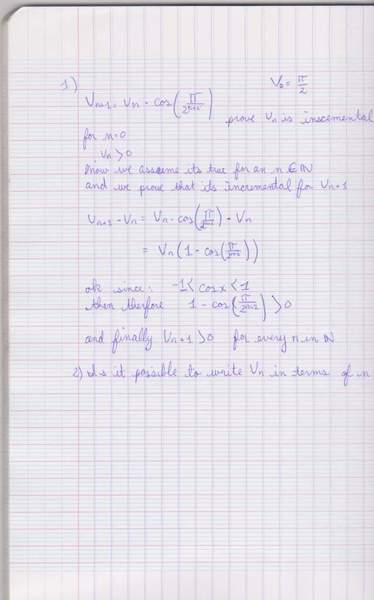 1) V₀ = π/2
Vn+1 = Vn · cos(π/2ⁿ⁺²) prove Vn is inscemental
for n=0
Vn > 0
Now we assume its true for an n ∈ ℕ
and we prove that its incremental for Vn+1
Vn+1 - Vn = Vn · cos(π/2ⁿ⁺²) - Vn
= Vn(1 - cos(π/2ⁿ⁺²))
ok since: -1 < cos x < 1
then therfore 1 - cos(π/2ⁿ⁺²) > 0
and finally Vn+1 > 0 for every n in ℕ
2) Is it possible to write Vn in terms of n